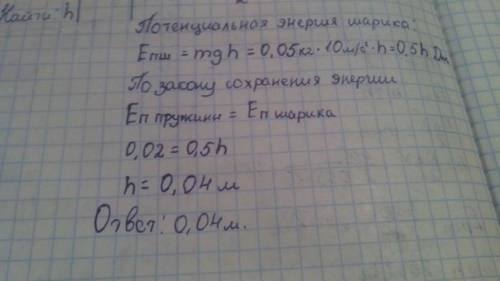 Найти h
Потенциальная энергия шарика:
Eпш = mgh = 0,05кг · 10м/с² · h = 0,5h Дж
По закону сохранения энергии
Eп пружины = Eп шарика
0,02 = 0,5h
h = 0,04 м
Ответ: 0,04м.